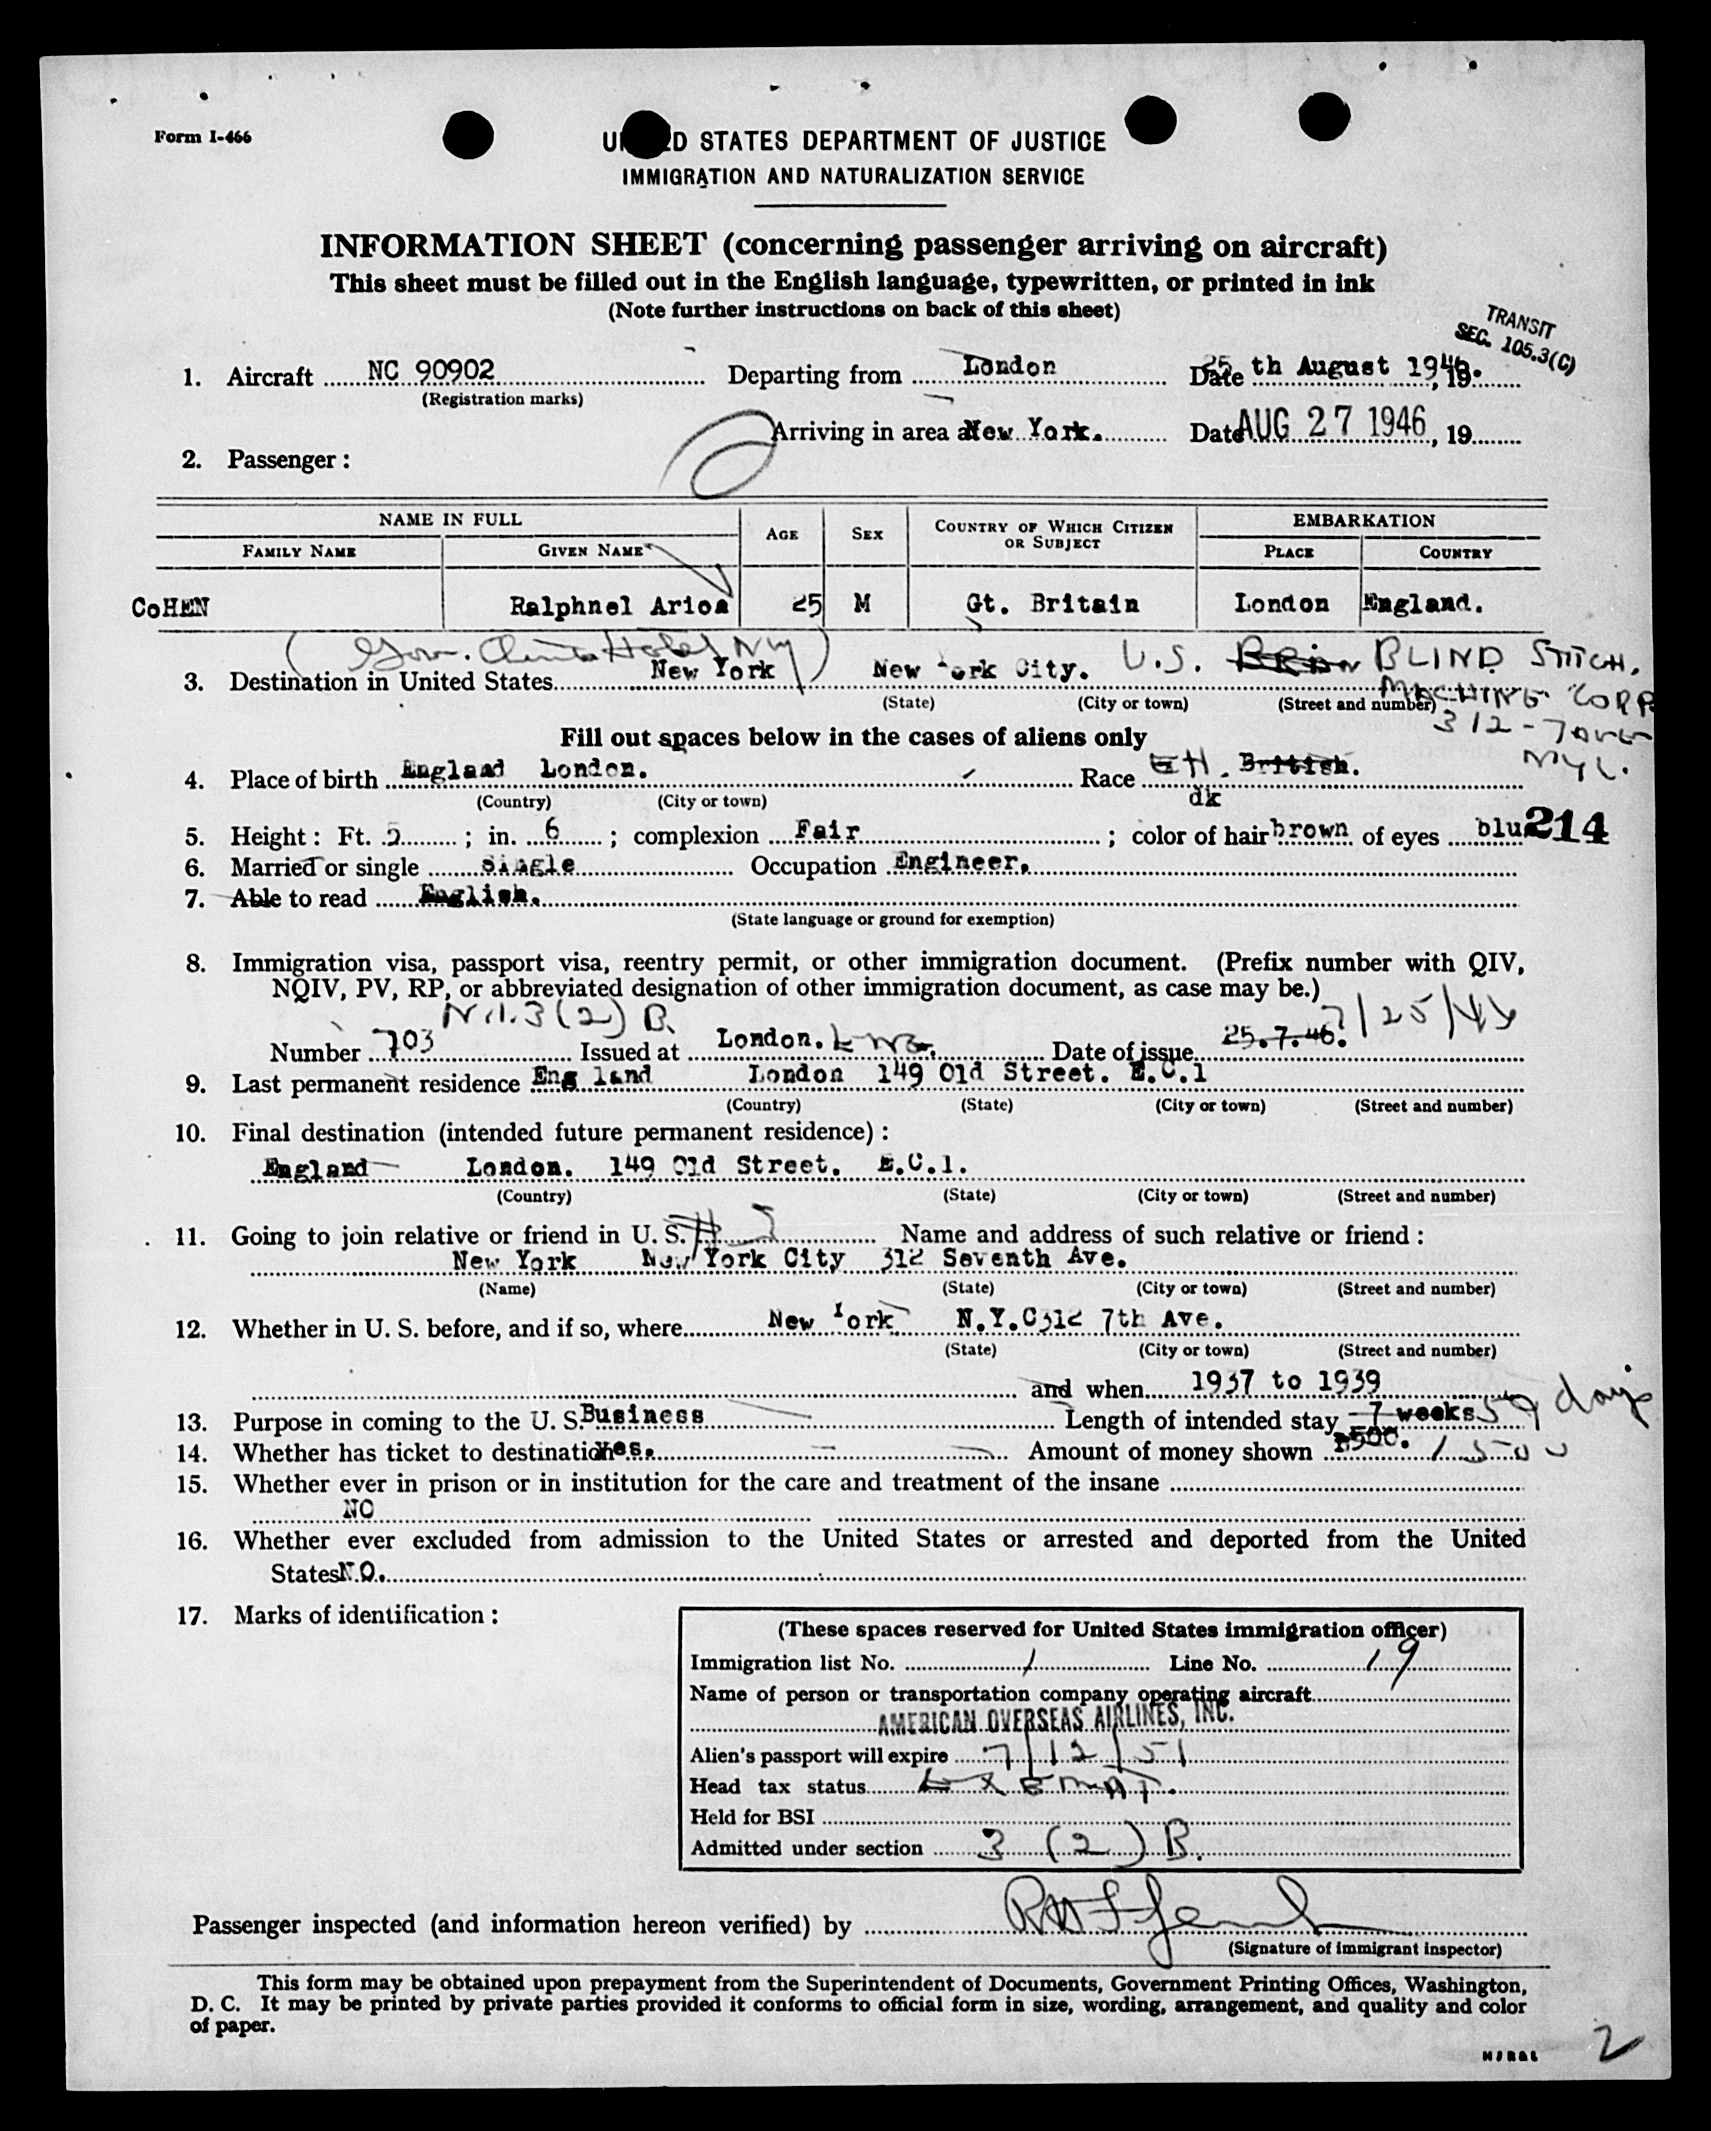 Form I-466
UNITED STATES DEPARTMENT OF JUSTICE
IMMIGRATION AND NATURALIZATION SERVICE
INFORMATION SHEET (concerning passenger arriving on aircraft)
This sheet must be filled out in the English language, typewritten, or printed in ink
(Note further instructions on back of this sheet)
TRANSIT
SEC. 105.3(C)
1. Aircraft NC 90902 Departing from London Date 25 th August 1946. , 19
(Registration marks)
Arriving in area at New York. Date AUG 27 1946, 19
2. Passenger :
NAME IN FULL AGE SEX COUNTRY OF WHICH CITIZEN OR SUBJECT EMBARKATION
FAMILY NAME GIVEN NAME PLACE COUNTRY
CoHEN Ralphnel Arioa 25 M Gt. Britain London England.
(Gov. Clinton Hotel NY)
3. Destination in United States New York New York City. U.S. BLIND STITCH.
MACHINE CORP
(State) (City or town) (Street and number)
312-7 Ave
NYC.
Fill out spaces below in the cases of aliens only
4. Place of birth England London. Race EH. British.
(Country) (City or town) dk
5. Height : Ft. 5 ; in. 6 ; complexion Fair ; color of hair brown of eyes blu 214
6. Married or single single Occupation Engineer.
7. Able to read English.
(State language or ground for exemption)
8. Immigration visa, passport visa, reentry permit, or other immigration document. (Prefix number with QIV,
NQIV, PV, RP, or abbreviated designation of other immigration document, as case may be.)
N.I. 3(2) B. 7/25/46
Number 703 Issued at London. Eng. Date of issue 25.7.46.
9. Last permanent residence England London 149 Old Street. E.C.1
(Country) (State) (City or town) (Street and number)
10. Final destination (intended future permanent residence) :
England London. 149 Old Street. E.C.1.
(Country) (State) (City or town) (Street and number)
11. Going to join relative or friend in U. S. # 3 Name and address of such relative or friend :
New York New York City 312 Seventh Ave.
(Name) (State) (City or town) (Street and number)
12. Whether in U. S. before, and if so, where New York N.Y.C 312 7th Ave.
(State) (City or town) (Street and number)
and when 1937 to 1939
13. Purpose in coming to the U. S. Business Length of intended stay 7 weeks 59 days
14. Whether has ticket to destination yes. Amount of money shown $500. 1500
15. Whether ever in prison or in institution for the care and treatment of the insane
NO
16. Whether ever excluded from admission to the United States or arrested and deported from the United
States N.O.
17. Marks of identification :
(These spaces reserved for United States immigration officer)
Immigration list No. 1 Line No. 19
Name of person or transportation company operating aircraft
AMERICAN OVERSEAS AIRLINES, INC.
Alien's passport will expire 7/12/51
Head tax status EXEMPT.
Held for BSI
Admitted under section 3 (2) B.
Passenger inspected (and information hereon verified) by
(Signature of immigrant inspector)
This form may be obtained upon prepayment from the Superintendent of Documents, Government Printing Offices, Washington,
D. C. It may be printed by private parties provided it conforms to official form in size, wording, arrangement, and quality and color
of paper.
2